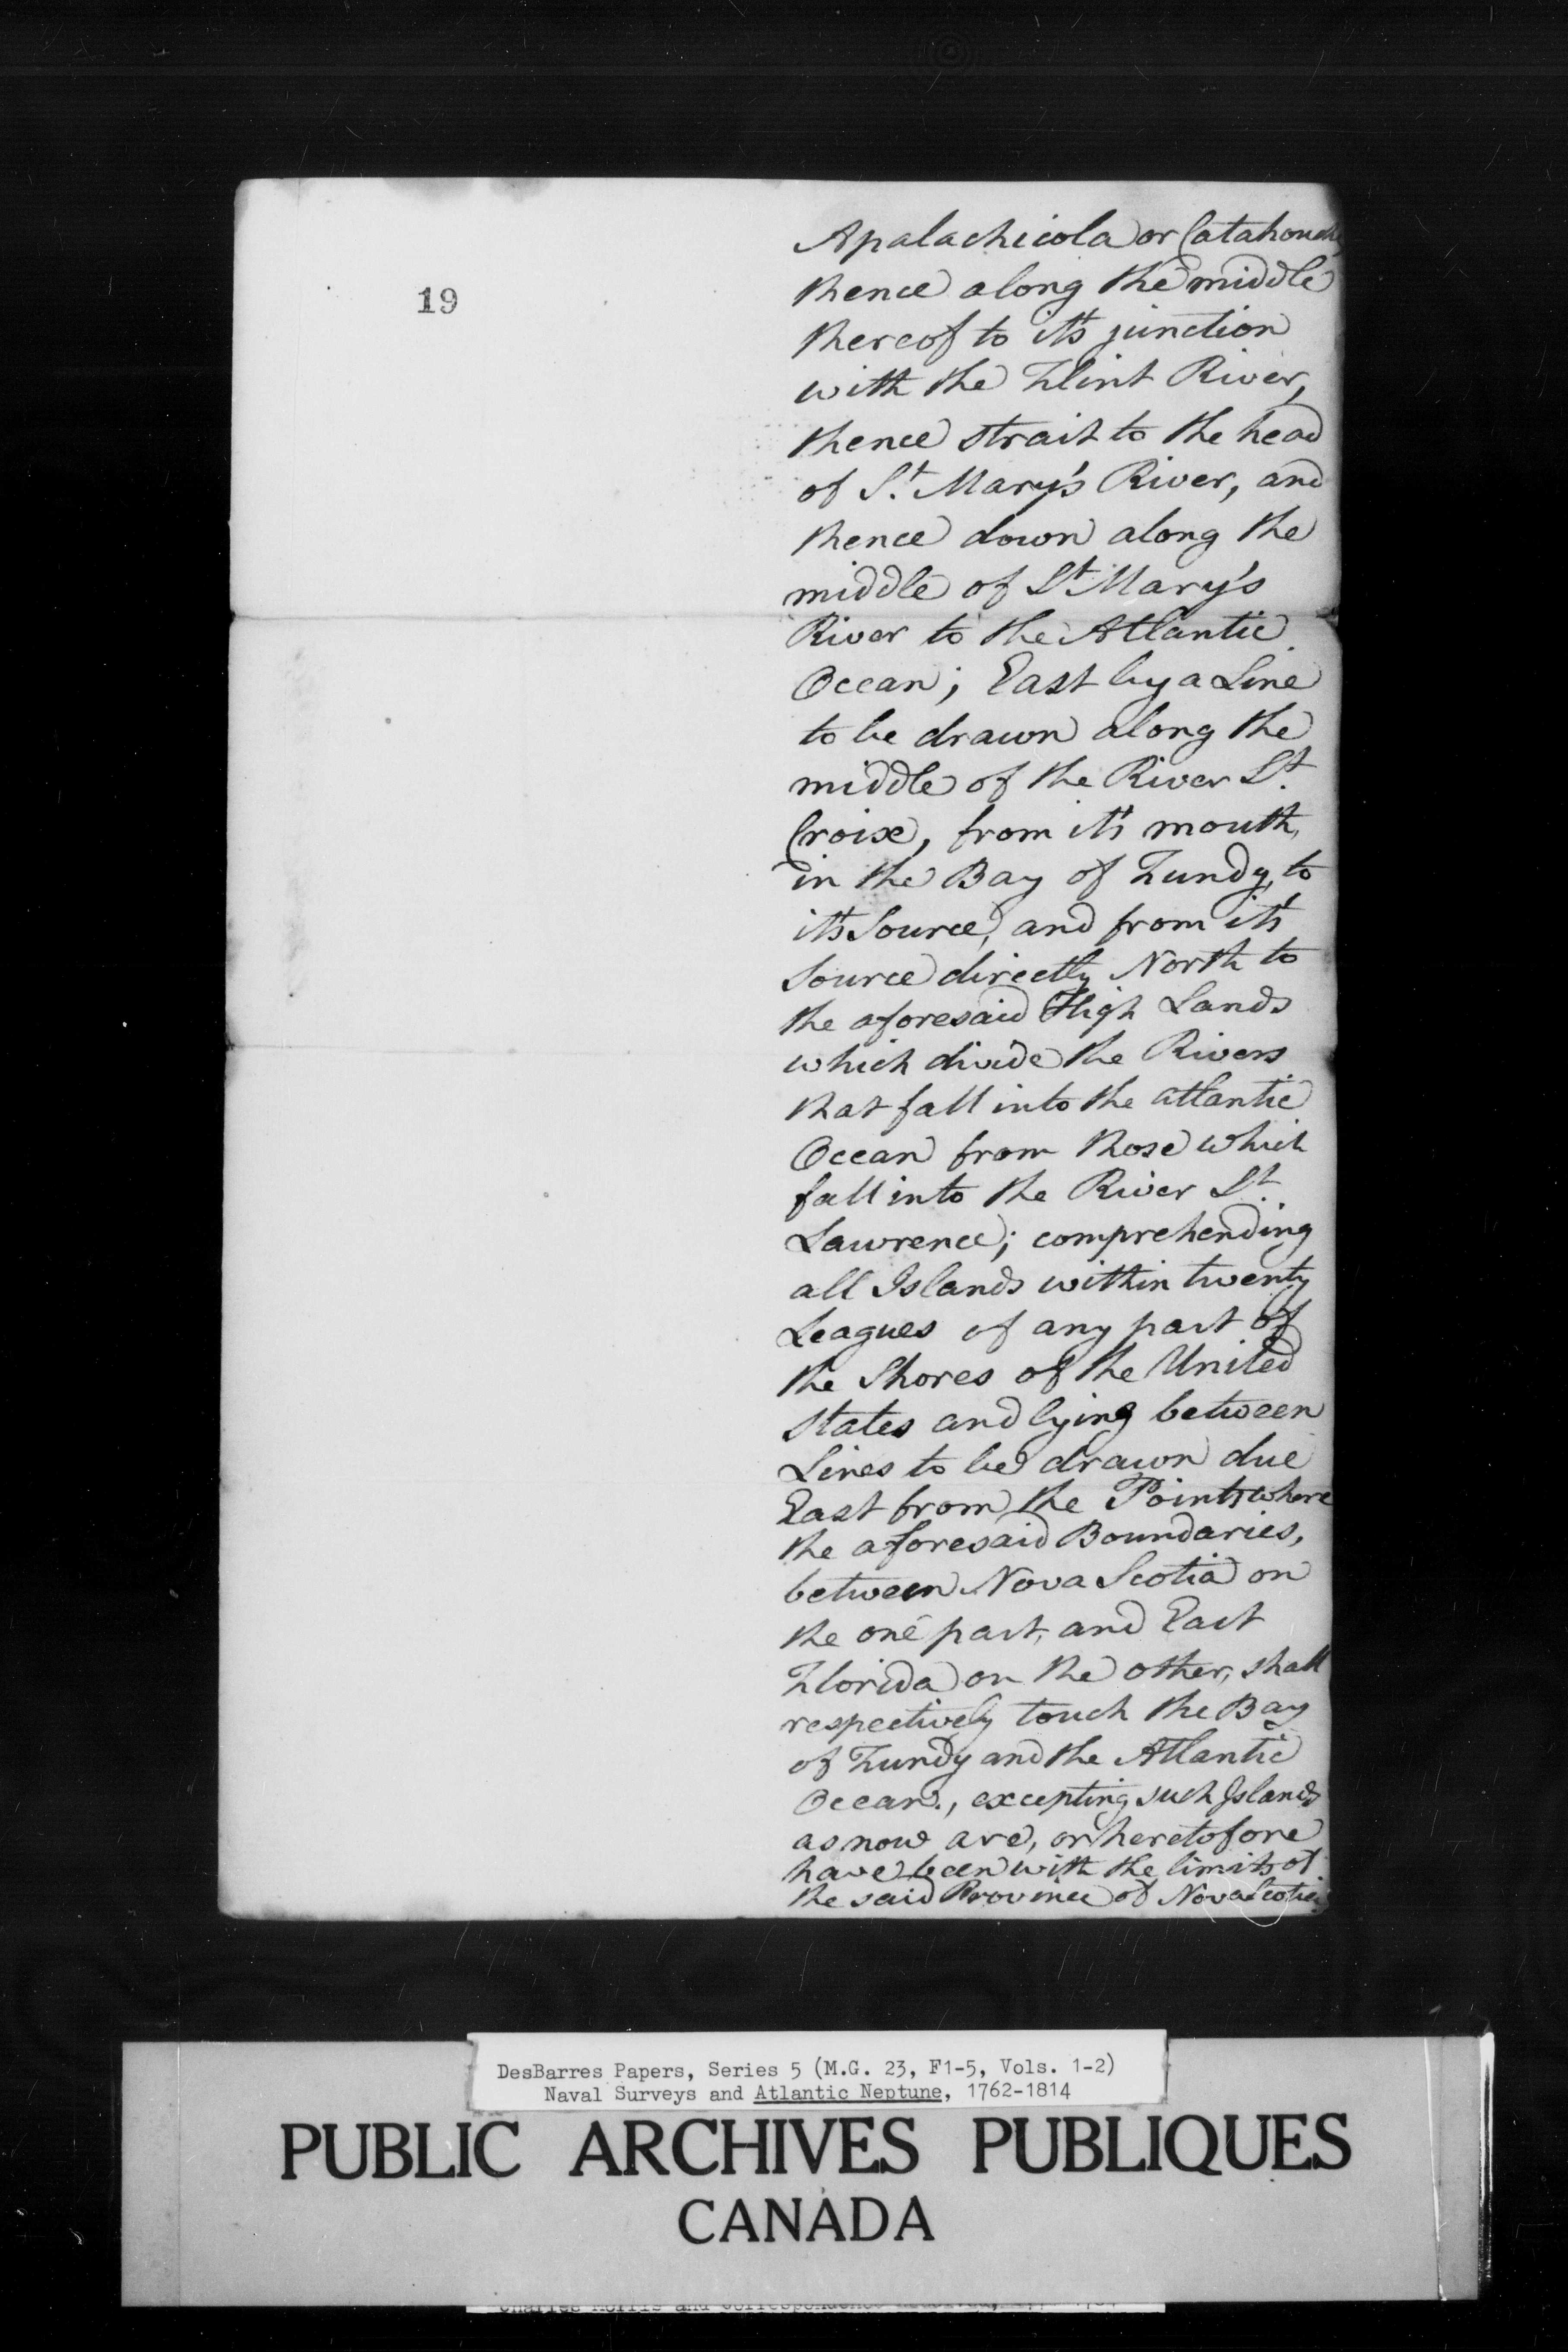 19
Apalachicola or Catahouche
thence along the middle
thereof to it's junction
with the Flint River,
thence strait to the head
of St. Mary's River, and
thence down along the
middle of St. Mary's
River to the Atlantic
Ocean; East by a Line
to be drawn along the
middle of the River St.
Croix, from it's mouth,
in the Bay of Fundy, to
it's Source, and from it's
Source directly North to
the aforesaid High Lands
which divide the Rivers
that fall into the atlantic
Ocean from those which
fall into the River St.
Lawrence; comprehending
all Islands within twenty
Leagues of any part of
the Shores of the United
States and lying between
Lines to be drawn due
East from the Points where
the aforesaid Boundaries,
between Nova Scotia on
the one part, and East
Florida on the other, shall
respectively touch the Bay
of Fundy and the Atlantic
Ocean., excepting such Islands
as now are, or heretofore
have been with the limits of
the said Province of Nova Scotia
DesBarres Papers, Series 5 (M.G. 23, F1-5, Vols. 1-2)
Naval Surveys and Atlantic Neptune, 1762-1814
PUBLIC ARCHIVES PUBLIQUES
CANADA